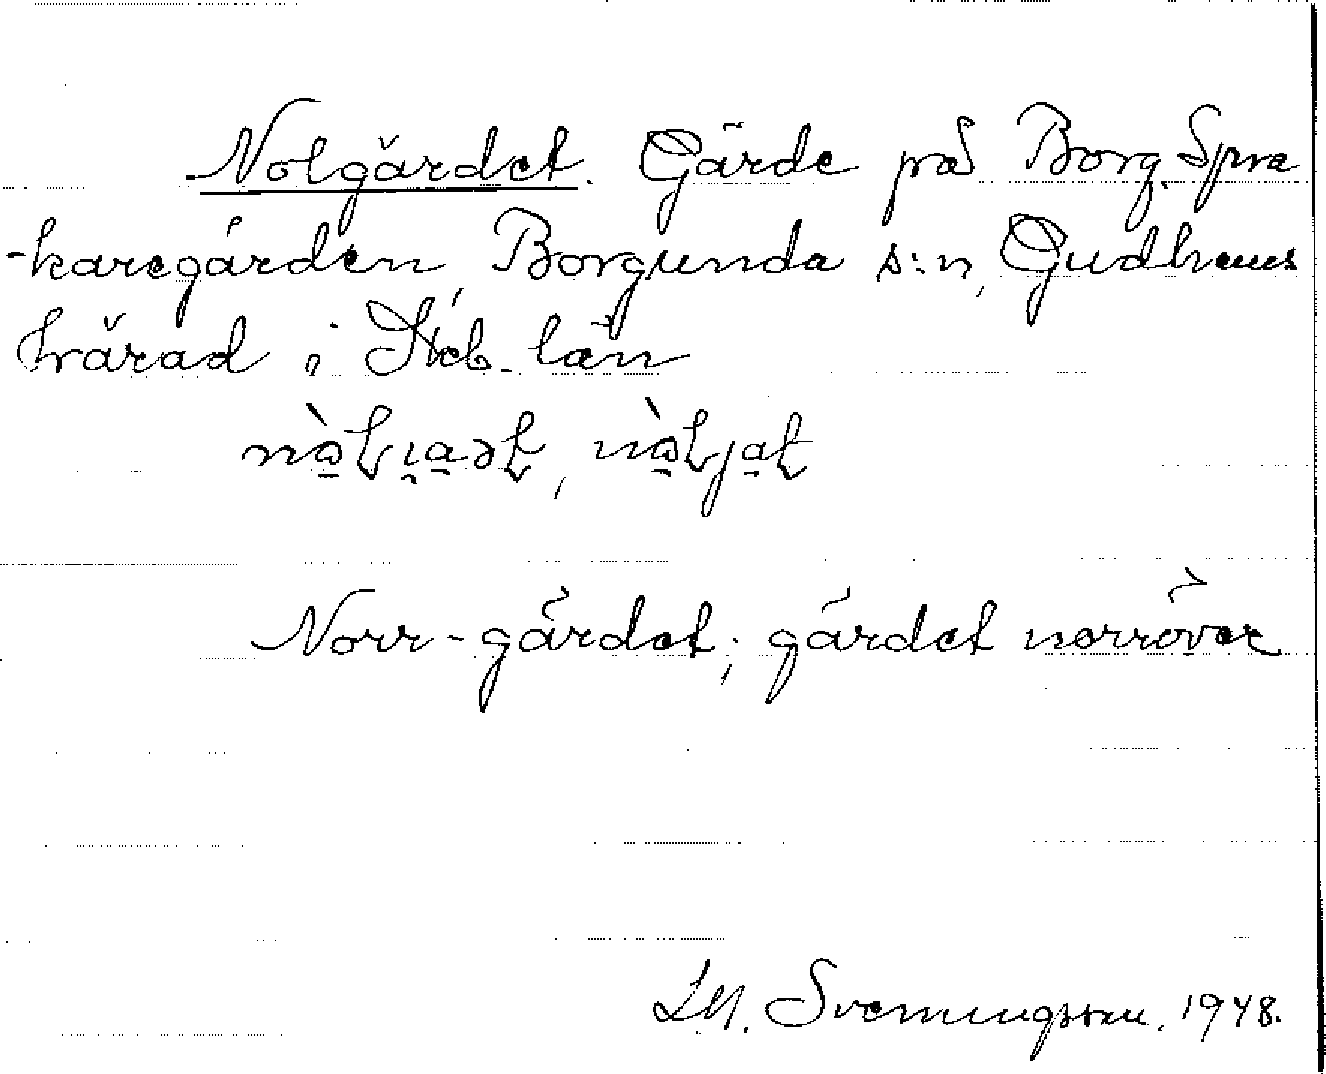 Nolgärdet. Gärde på Borg. Spra
-karegården, Borgunda s:n, Gudhems
härad i Skb. län
Norr-gärdet; gärdet norröver
Svenningsson, 1948.